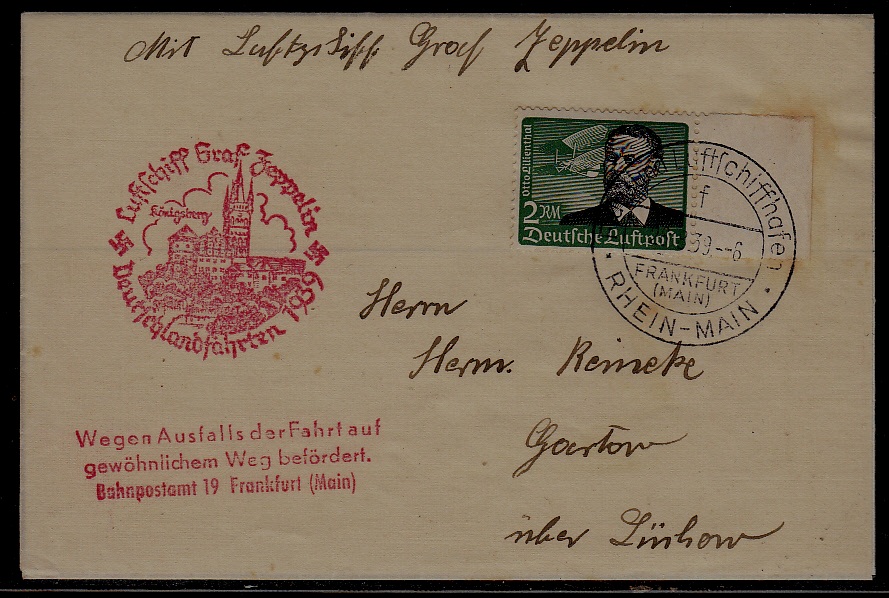 Mit Luftschiff Graf Zeppelin
Luftschiff Graf Zeppelin
Königsberg
Deutschlandfahrten 1939
Otto Lilienthal
2 RM
Deutsche Luftpost
Luftschiffhafen
f
39.--6
FRANKFURT
(MAIN)
RHEIN-MAIN
Herrn
Herm. Reineke
Gartow
über Lüchow
Wegen Ausfalls der Fahrt auf
gewöhnlichem Weg befördert.
Bahnpostamt 19 Frankfurt (Main)